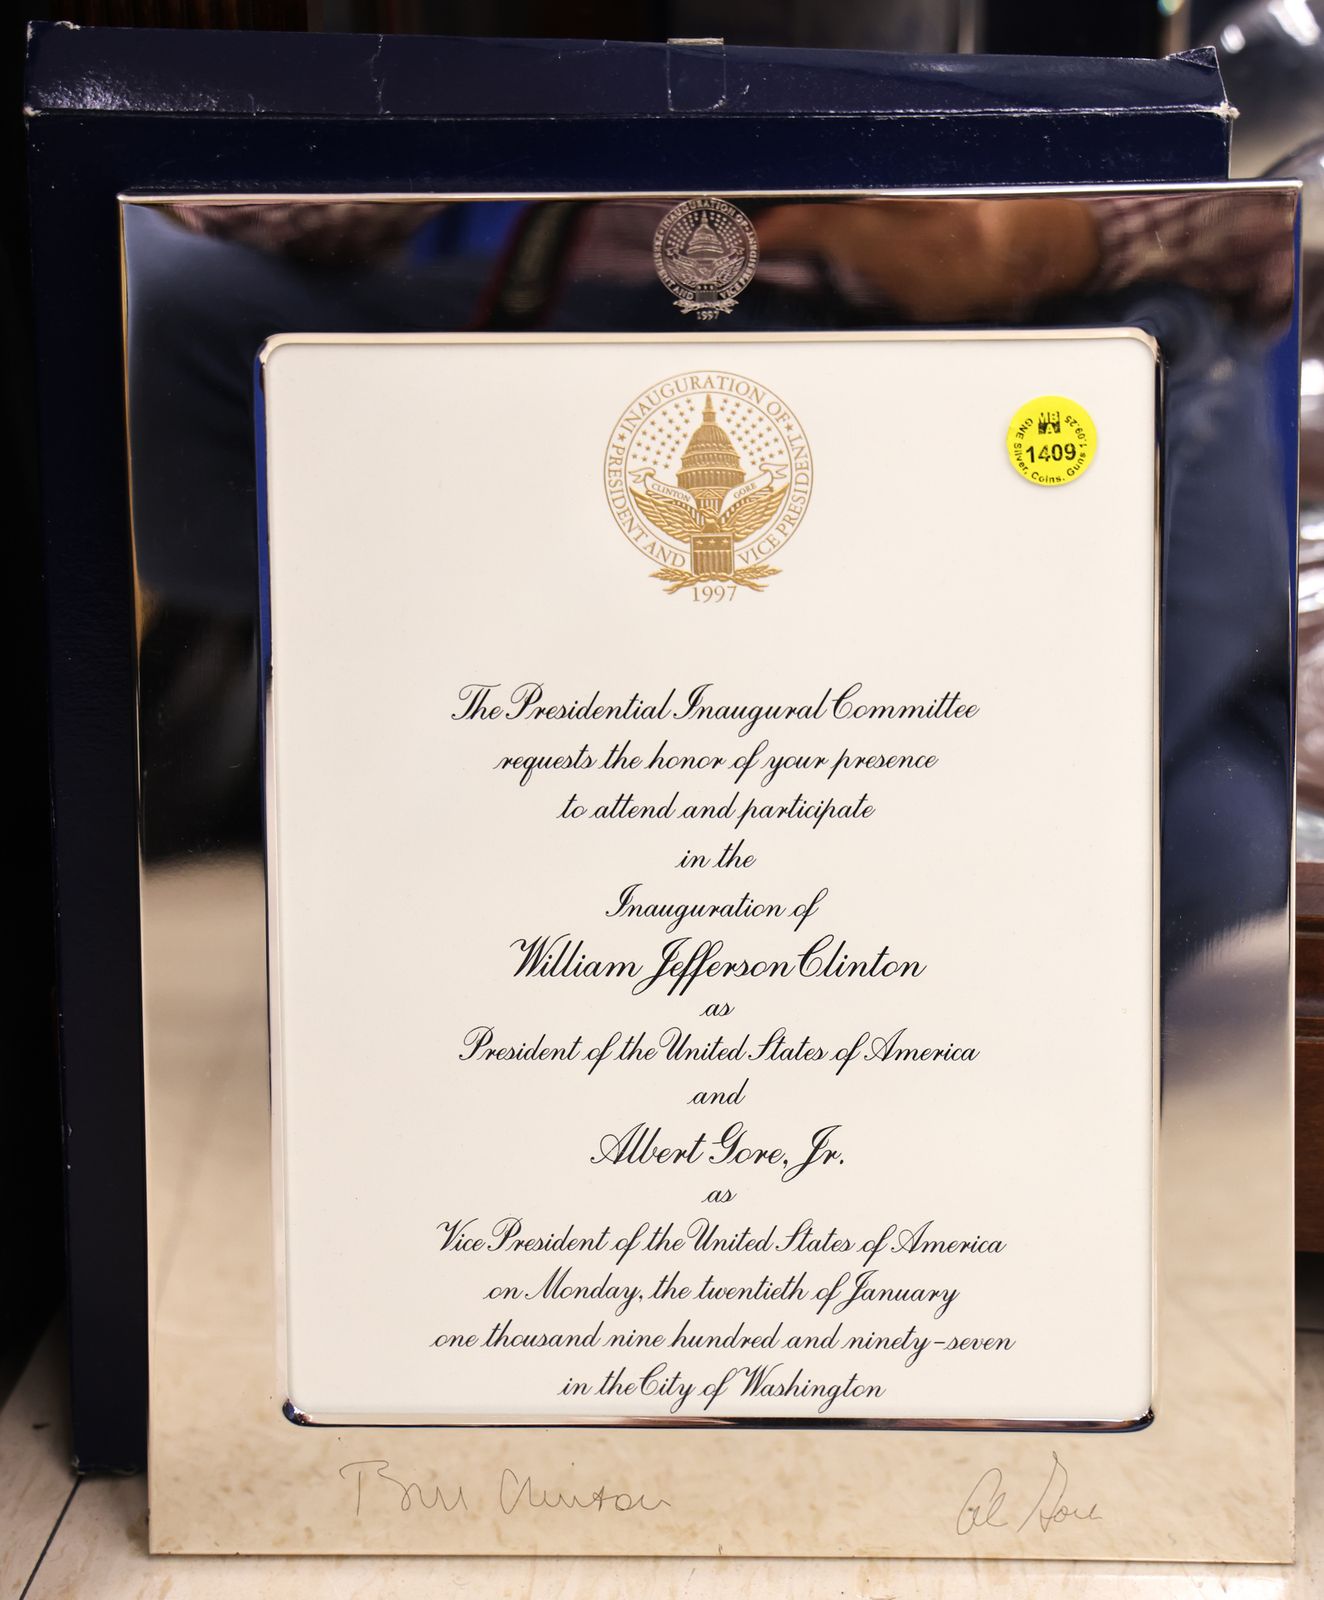 INAUGURATION OF
PRESIDENT AND VICE PRESIDENT
1997
INAUGURATION OF
PRESIDENT AND VICE PRESIDENT
CLINTON GORE
1997
1409
GNE Silver, Coins, Guns 1.09.25
The Presidential Inaugural Committee
requests the honor of your presence
to attend and participate
in the
Inauguration of
William Jefferson Clinton
as
President of the United States of America
and
Albert Gore, Jr.
as
Vice President of the United States of America
on Monday, the twentieth of January
one thousand nine hundred and ninety-seven
in the City of Washington
Bill Clinton
Al Gore